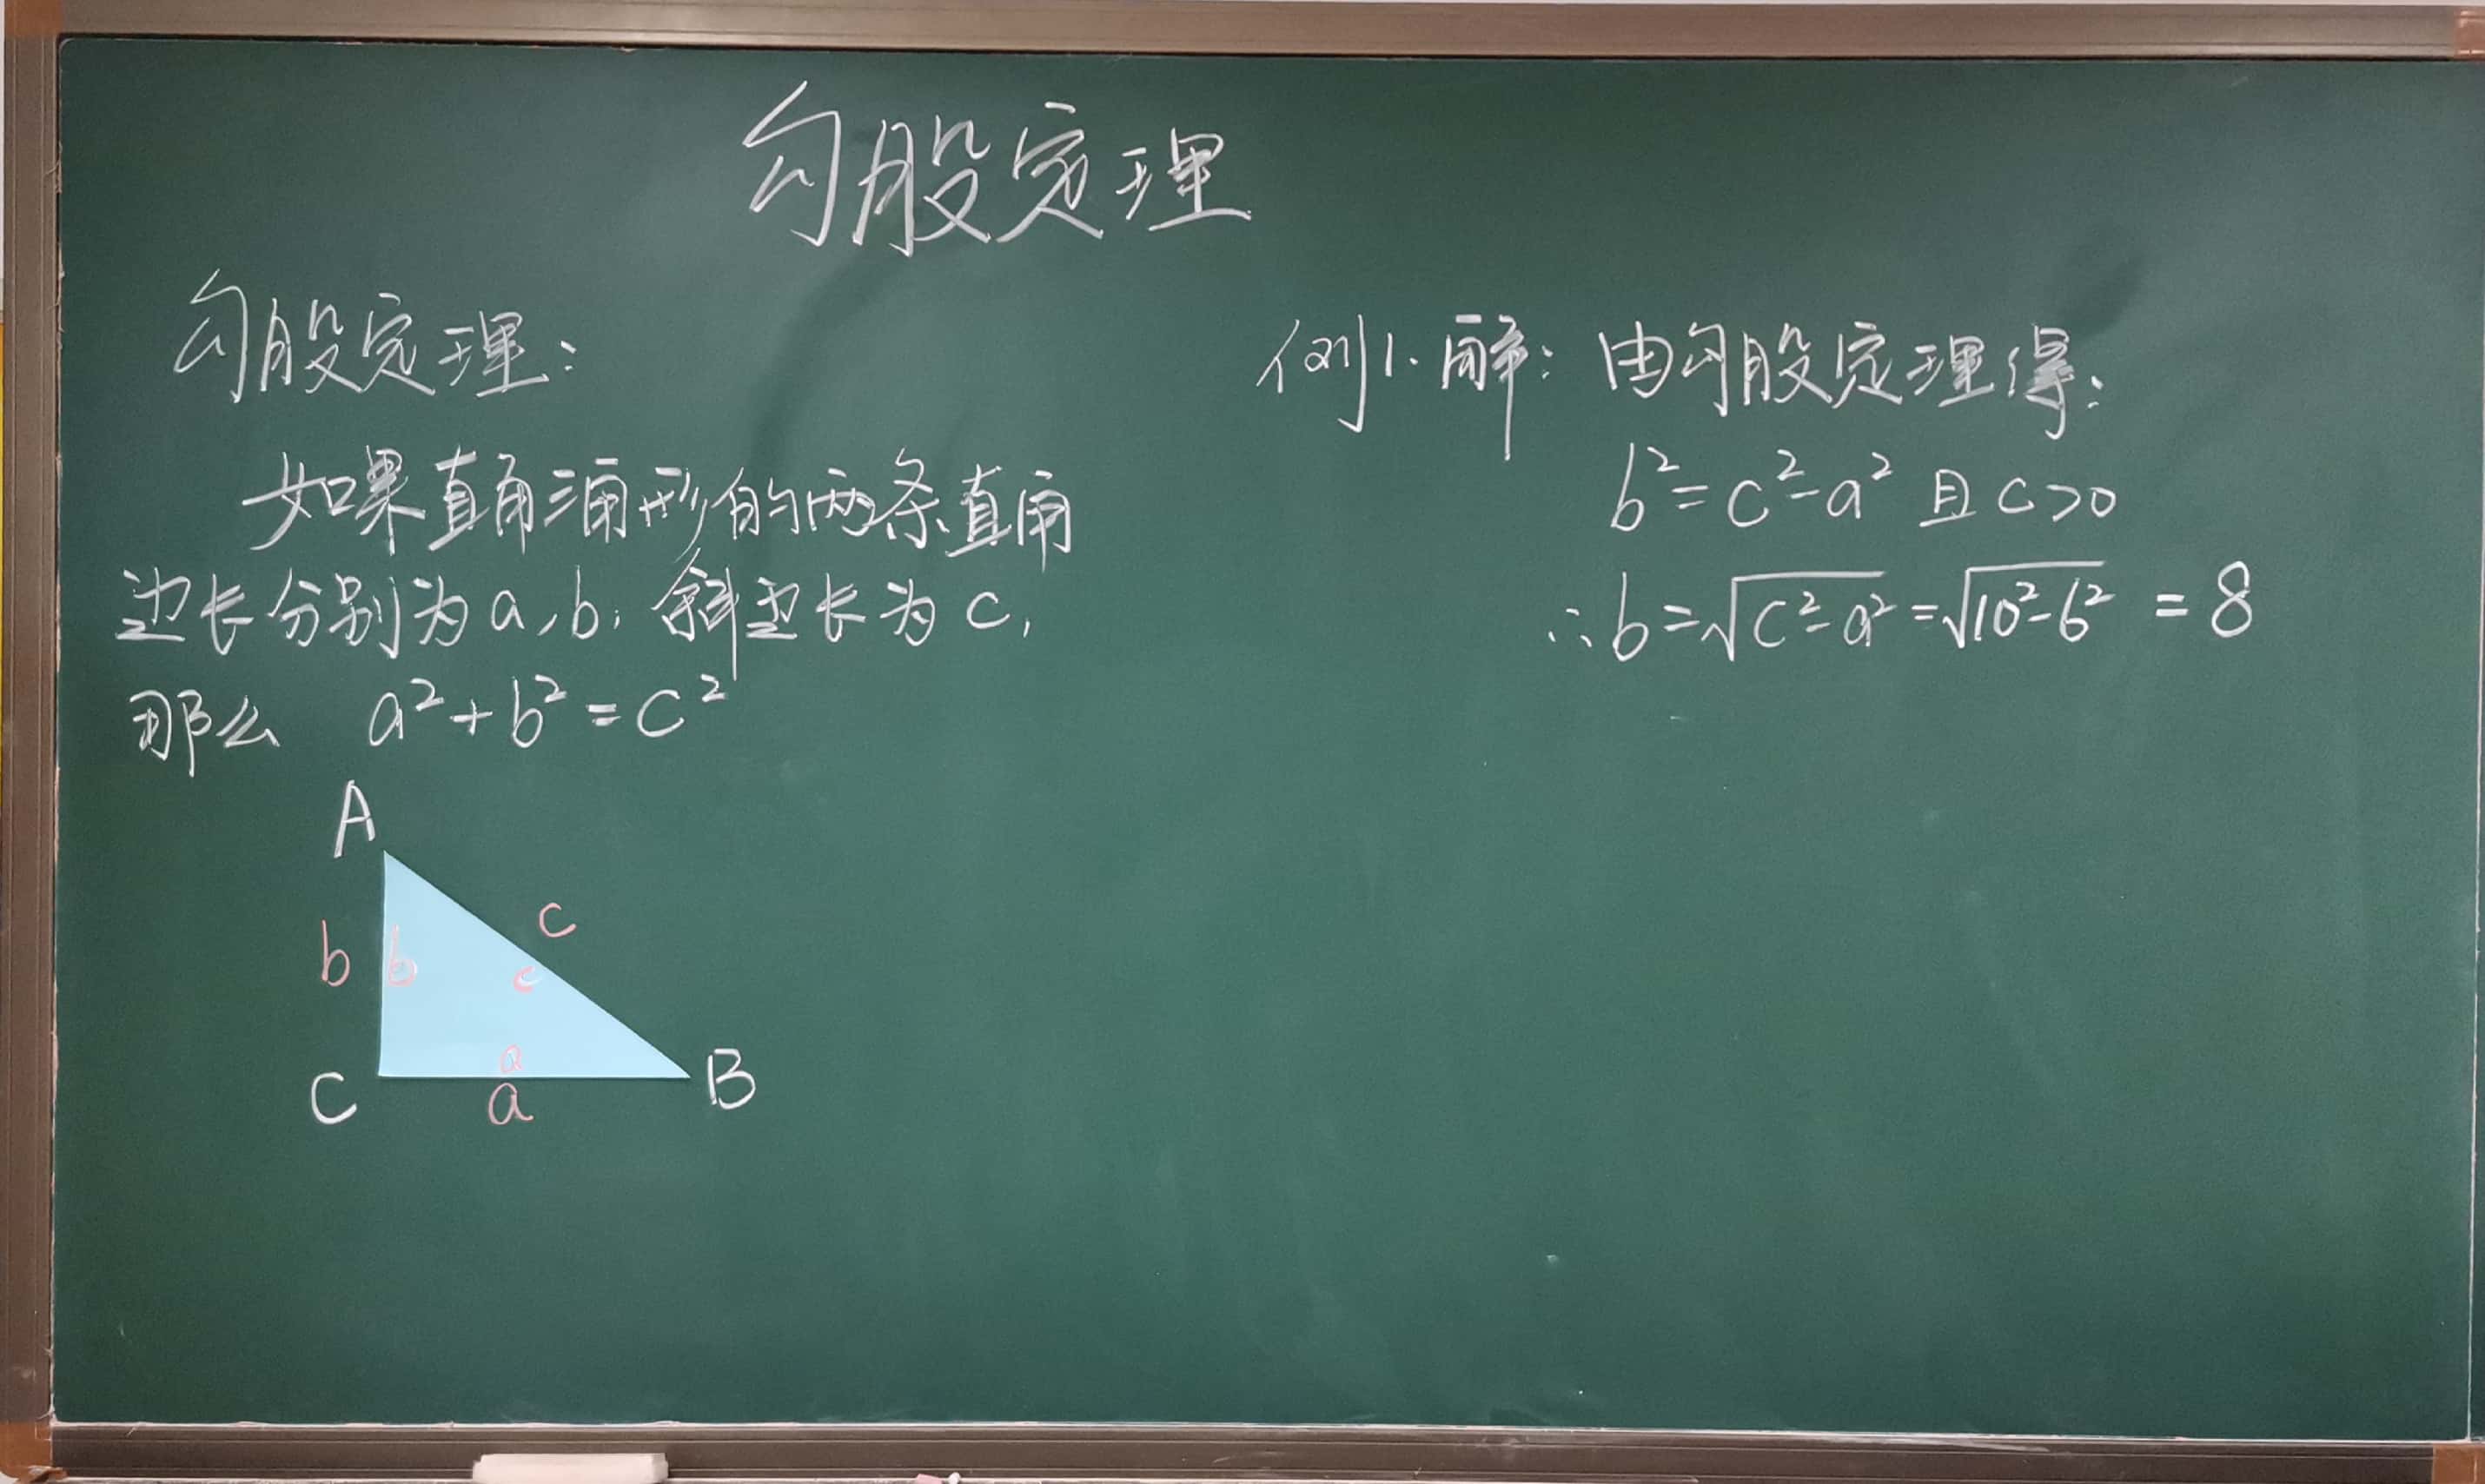 勾股定理
勾股定理：
如果直角三角形的两条直角
边长分别为a,b,斜边长为c,
那么 a²+b²=c²
A
c
b b
c
a
C
a
B
例1.解：由勾股定理得：
b²=c²-a² 且c>0
∴b=√(c²-a²)=√(10²-6²)=8